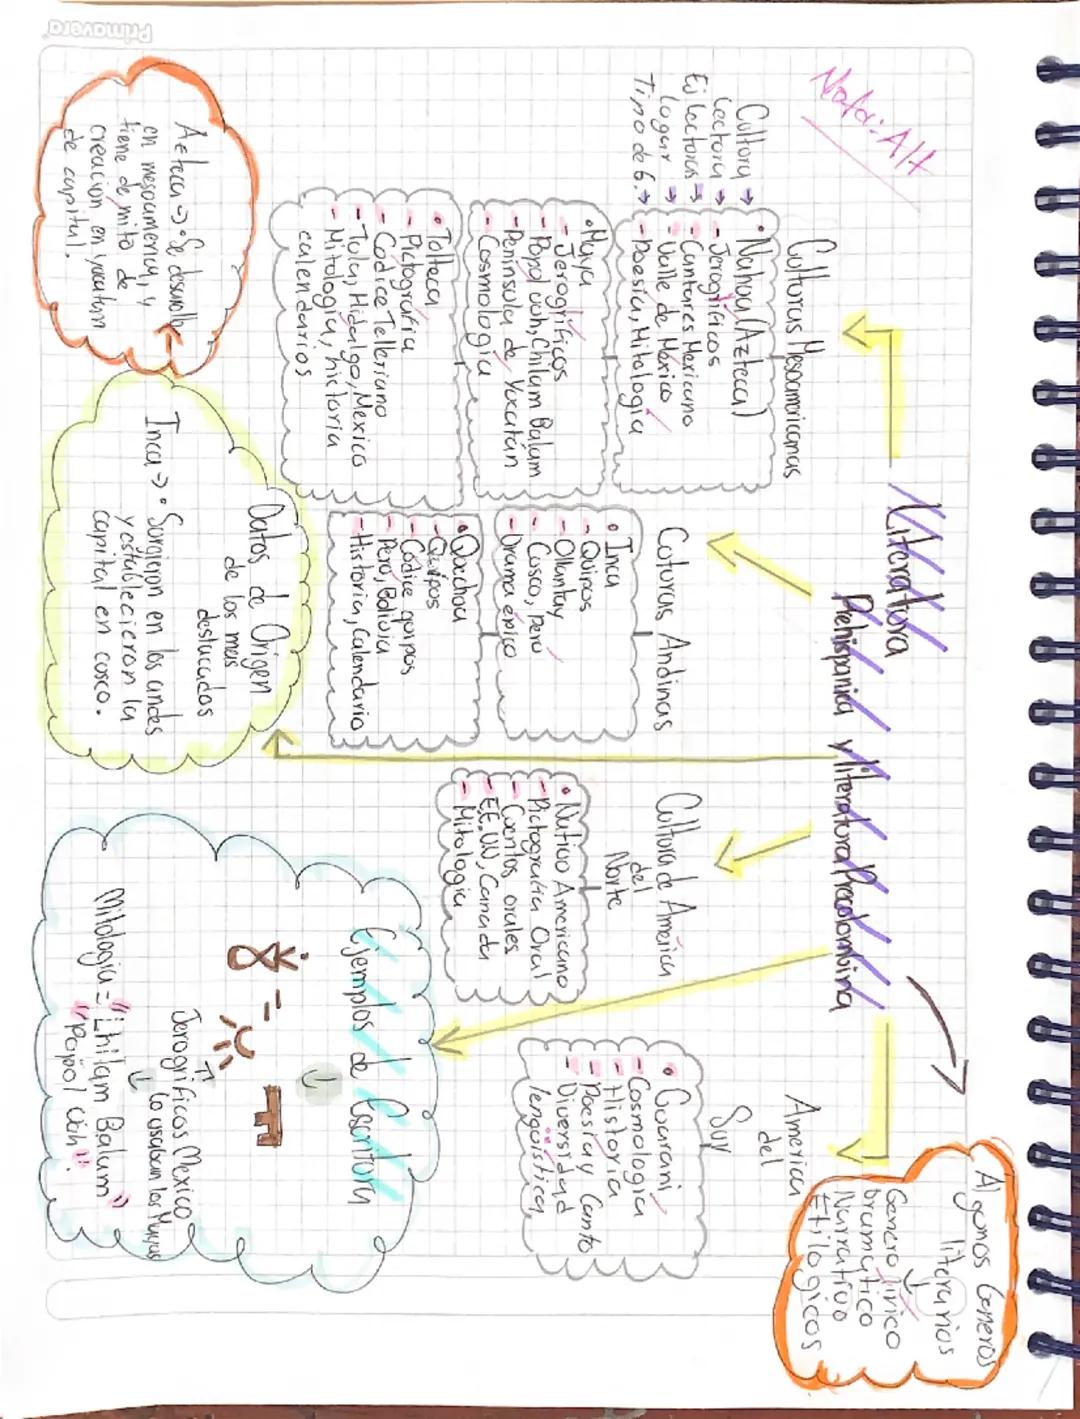 Primavera
Nota: Alt
Literatura
Prehispanica y literatura Precolombina
Culturas Mesoamericanas
Cultura →
Lectura →
Ej lecturas →
Lugar →
Tipo de 6. →
• Nahua (Azteca)
- Jerogrificos
- Cantares Mexicano
- Valle de México
- Poesia, Mitologia
• Maya
- Jerogrificos
- Popol vuh, Chilam Balam
- Peninsula de Yucatán
- Cosmologia
• Tolteca
- Pictografia
- Codice Telleriano
- Tula, Hidalgo, Mexico
- Mitologia, historia
calendarios
Culturas Andinas
• Inca
- Quipos
- Ollantay
- Cusco, Perú
- Drama épico
• Quechua
- Quipos
- Codice quipus
- Perú, Bolivia
- Historia, Calendario
Cultura de América
del
Norte
• Nativo Americano
- Pictografia Oral
- Cuentos orales
- EE.UU, Canada
- Mitologia
America
del
Sur
• Guarani
- Cosmologia
- Historia
- Poesia y Canto
- Diversidad
lengüistica
Algunos Generos
literarios
↓
Genero lirico
Dramatico
Narrativo
Etilogicos
Azteca → • Se desarollo
en mesoamerica, y
tiene de mito de
creacion en yucatan
de capital.
Datos de Origen
de los mas
destacados
Inca → • Surgieron en los andes
y establecieron la
capital en cusco.
Ejemplos de Escritura
↓
↑
Jerogrificos Mexico
↓ lo usaban los Mayas
Mitologia = "Chilam Balam"
"Popol vuh".